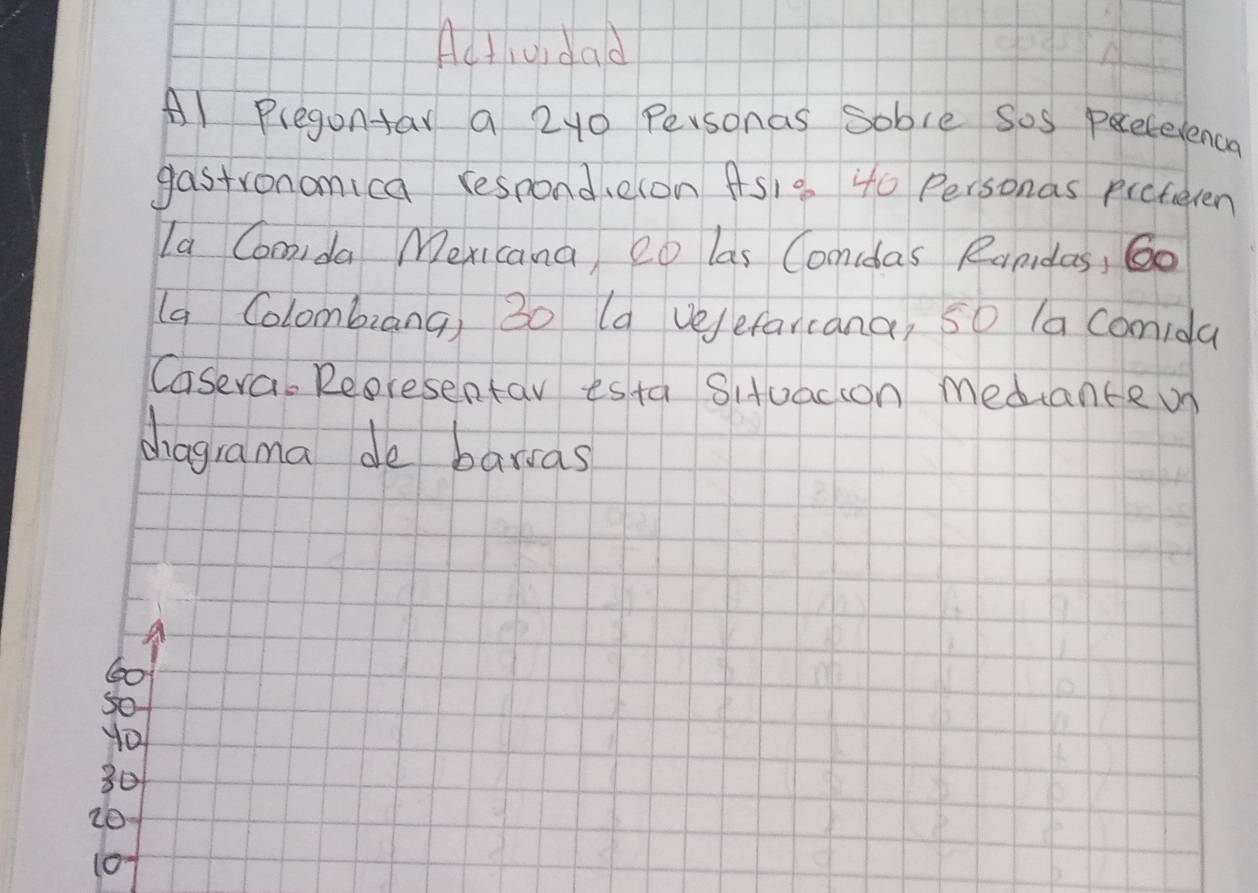 Actividad
Al Pregontar a 240 Personas Sobre Sos Preferenca
gastronomica respondieron Asi: 40 Personas Prefieren
la Comida Mexicana, 20 las Comidas Rapidas, 60
la Colombiana, 30 la vegetarcana, 50 la comida
Casera. Representar esta Situacion mediante un
diagrama de barras
60
50
40
30
20
10